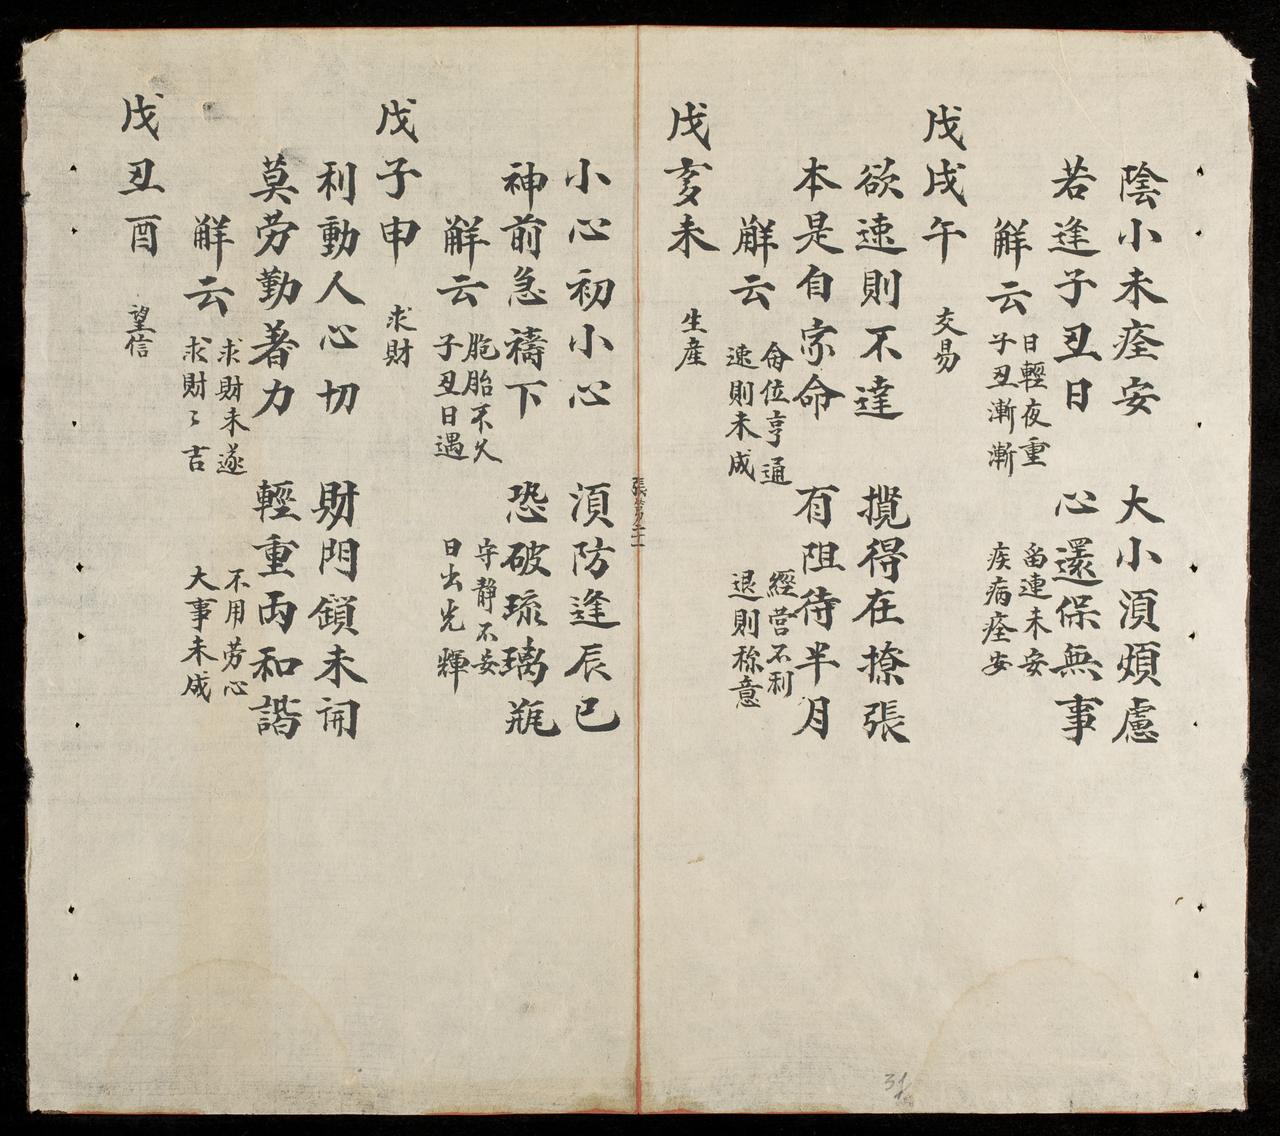 陰小未痊安　大小湏煩慮
若逢子丑日　心還保無事
解云　日輕夜重　畄連未安
子丑漸漸　疾病痊安
戊戌午　交易
欲速則不達　攪得在撩張
本是自家命　有阻待半月
解云　命位亨通　經营不利
速則未成　退則称意
戊亥未　生産
小心初小心　湏防逢辰巳
神前急禱下　恐破琉璃瓶
解云　胞胎不久　守静不安
子丑日遇　日出光輝
戊子申　求財
利動人心切　財門鎖未開
莫劳勤著力　輕重两和諧
解云　求財未遂　不用劳心
求財〻吉　大事未成
戊丑酉　望信
31